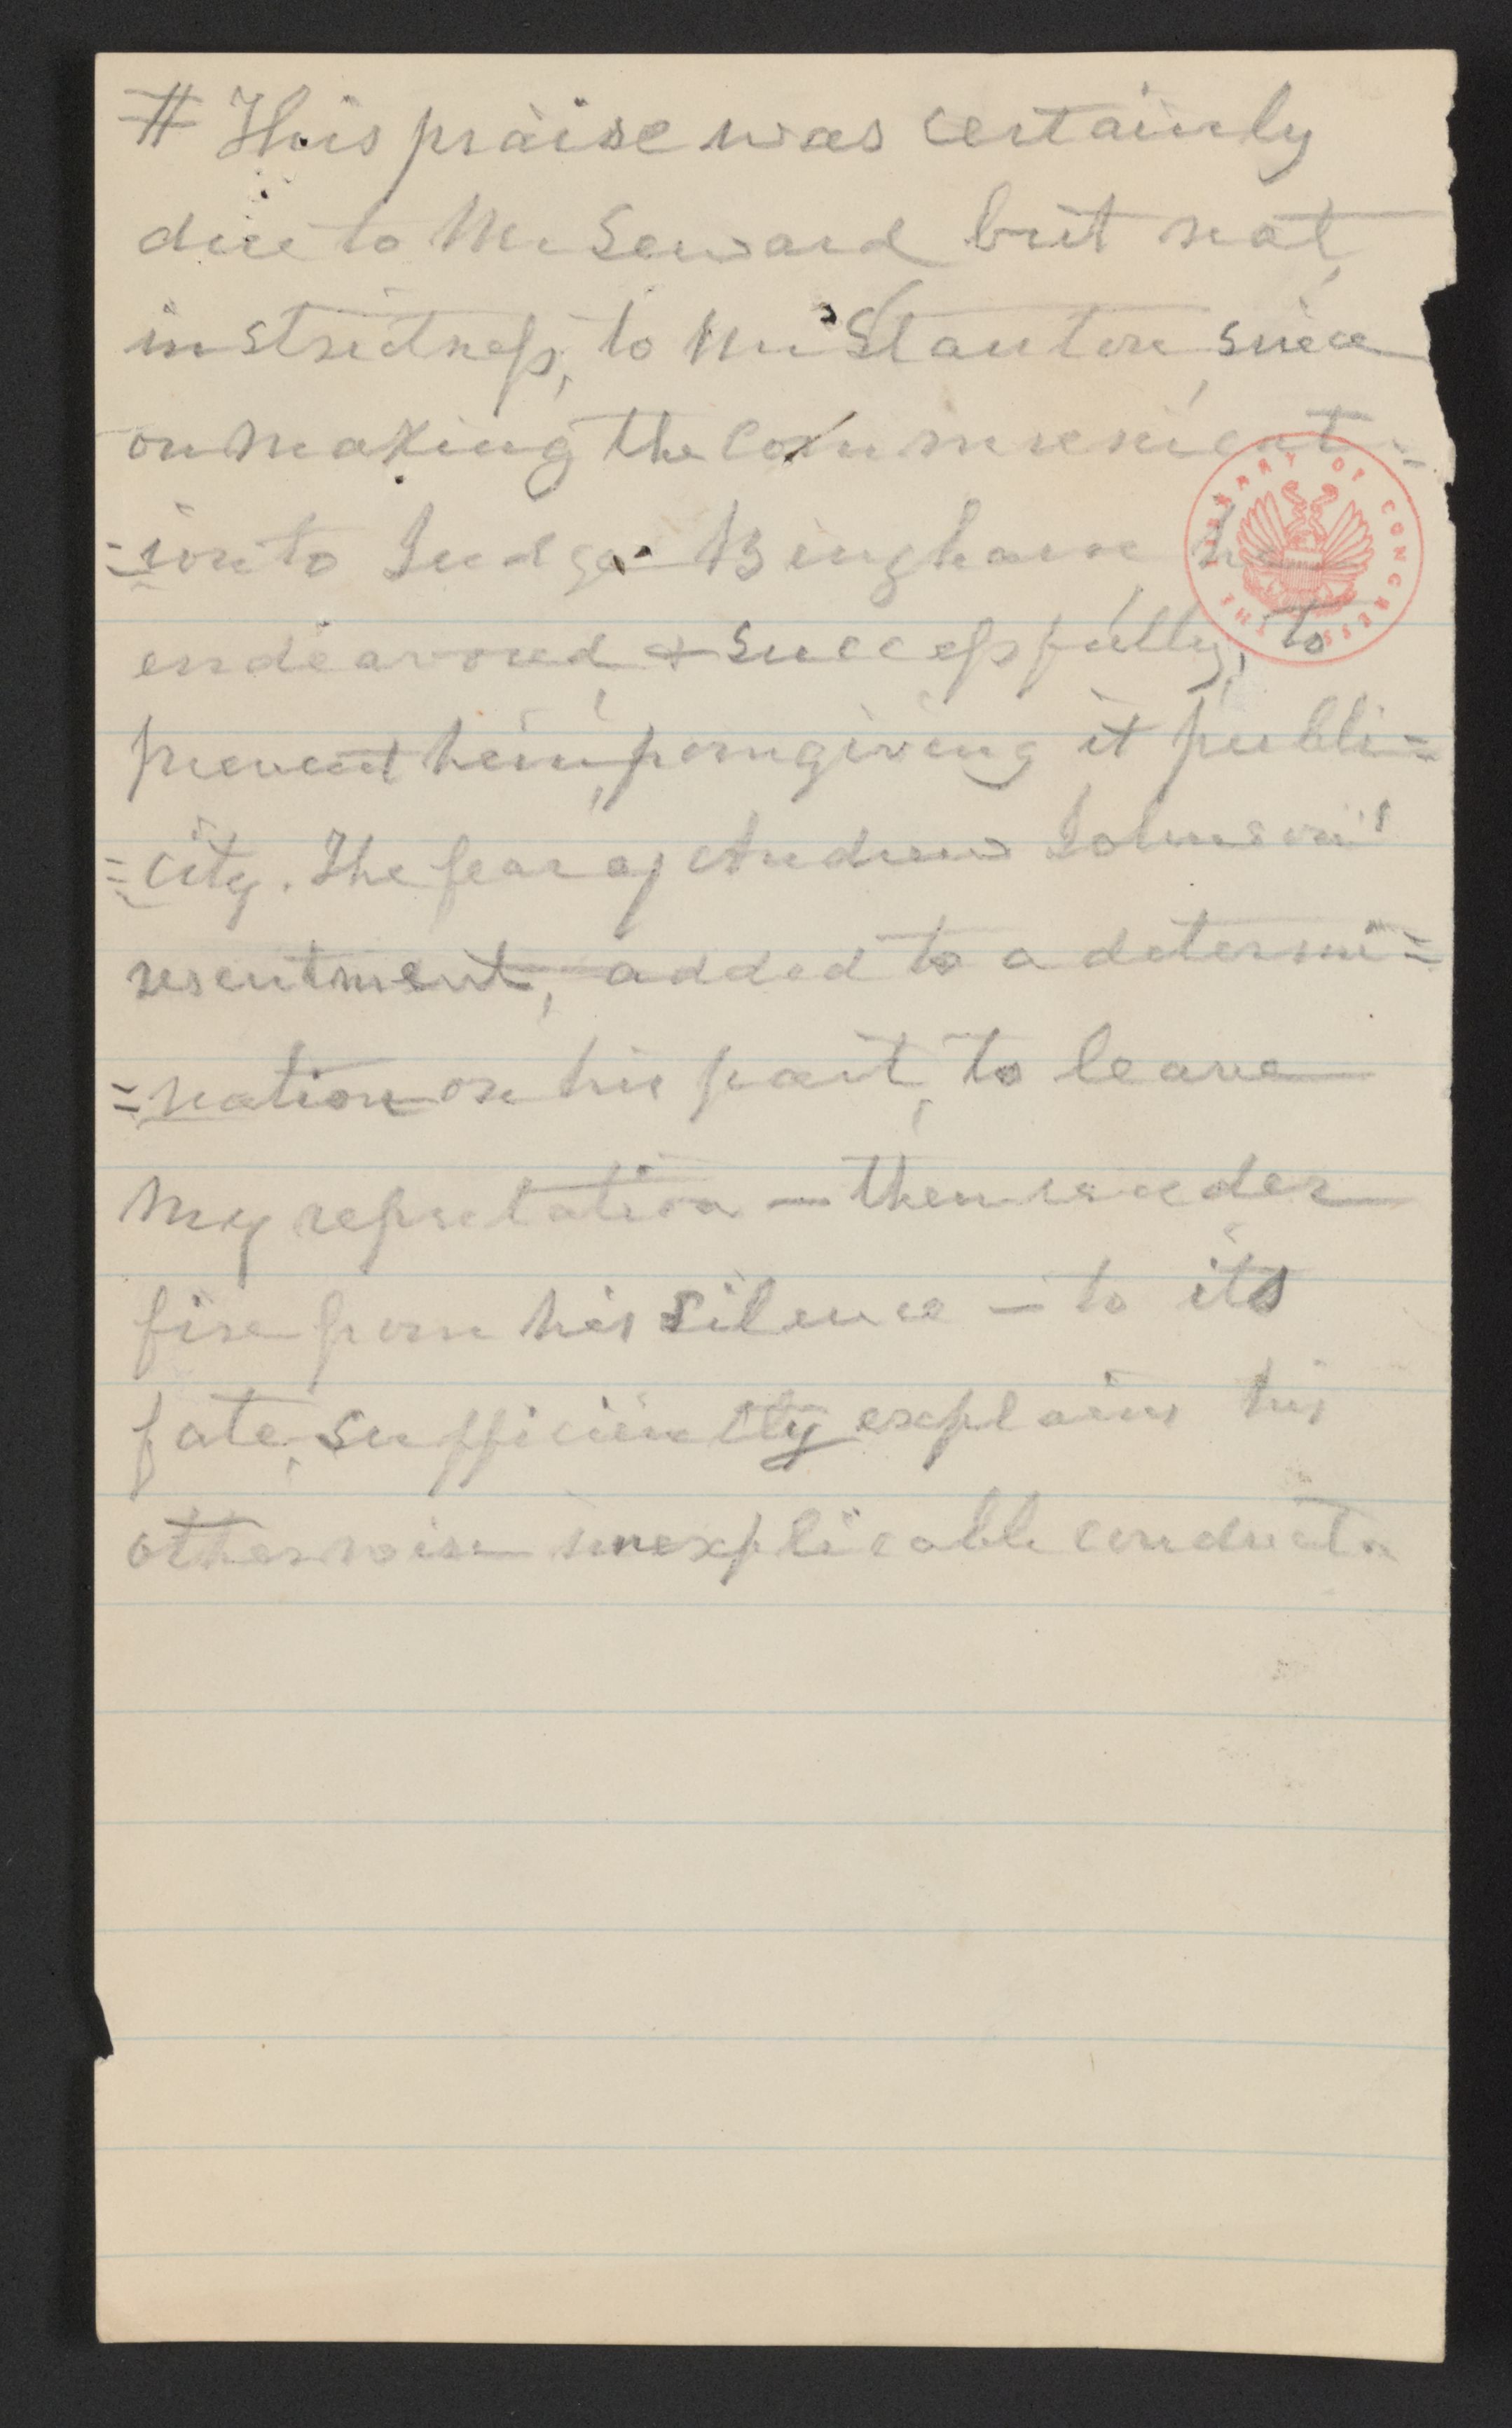 # This praise was certainly
due to Mr Seward but not,
in strictness, to Mr Stanton, since
on making the communicat=
=ion to Judge Bingham he
endeavored, & successfully, to
prevent him, from giving it publi=
=city. The fear of Andrew Johnson's
resentment, added to a determi=
=nation on his part, to leave
my reputation — then under
fire from his silence — to its
fate, sufficiently explains his
otherwise inexplicable conduct.
THE LIBRARY OF CONGRESS